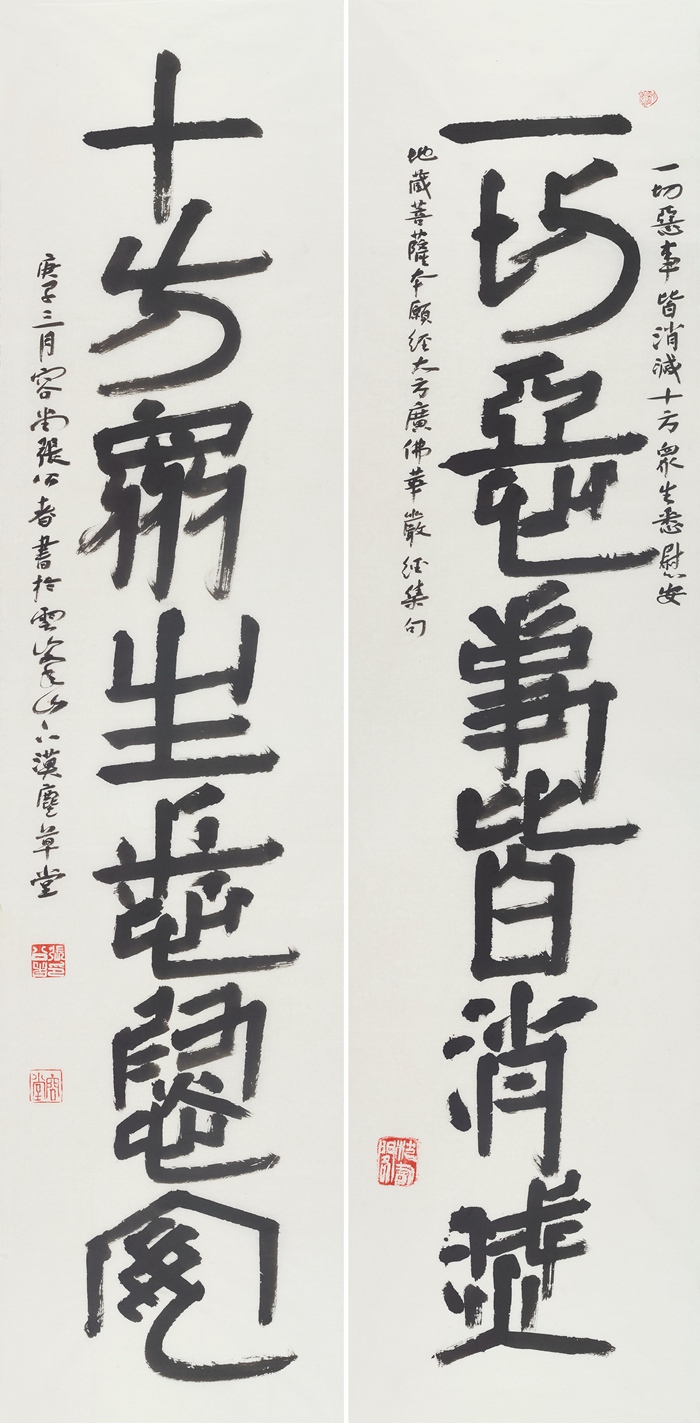 一切惡事皆消滅十方眾生悉慰安
一切惡事皆消滅
地藏菩薩本願經大方廣佛華嚴經集句
十方眾生悉慰安
庚子三月容堂張公者書於雲峯山下漠塵草堂
容堂